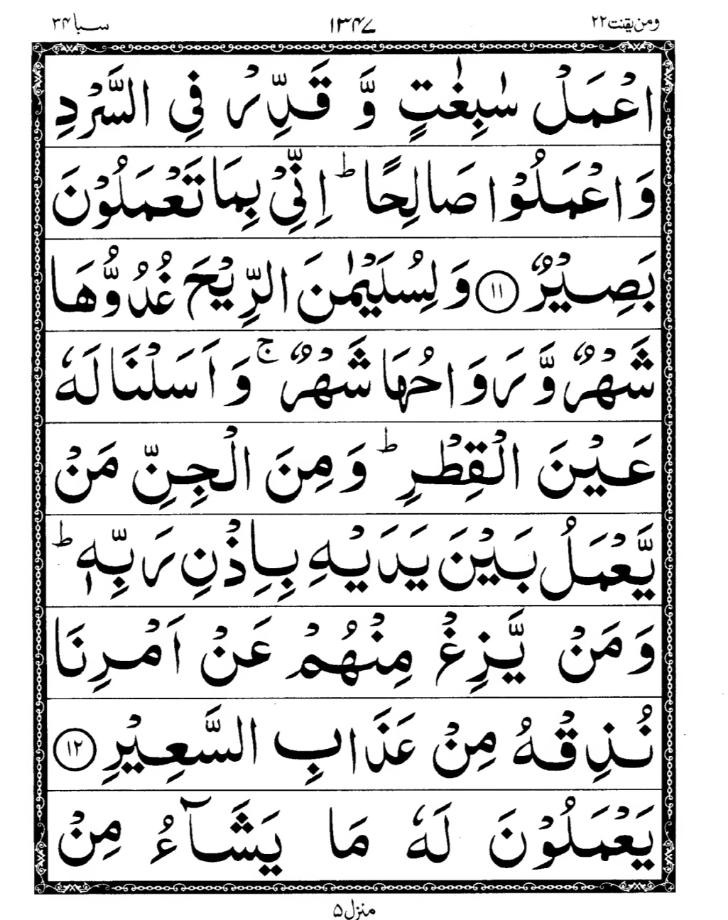 ومن یقنت ۲۲ ۱۳۴۷ سبا ۳۴
اعْمَلْ سٰبِغٰتٍ وَّ قَدِّرْ فِی السَّرْدِ
وَ اعْمَلُوْا صَالِحًا ؕ اِنِّیْ بِمَا تَعْمَلُوْنَ
بَصِیْرٌ ﴿۱۱﴾ وَ لِسُلَیْمٰنَ الرِّیْحَ غُدُوُّهَا
شَهْرٌ وَّ رَوَاحُهَا شَهْرٌ ۚ وَ اَسَلْنَا لَهٗ
عَیْنَ الْقِطْرِ ؕ وَ مِنَ الْجِنِّ مَنْ
یَّعْمَلُ بَیْنَ یَدَیْهِ بِاِذْنِ رَبِّهٖ ؕ
وَ مَنْ یَّزِغْ مِنْهُمْ عَنْ اَمْرِنَا
نُذِقْهُ مِنْ عَذَابِ السَّعِیْرِ ﴿۱۲﴾
یَعْمَلُوْنَ لَهٗ مَا یَشَآءُ مِنْ
منزل ۵